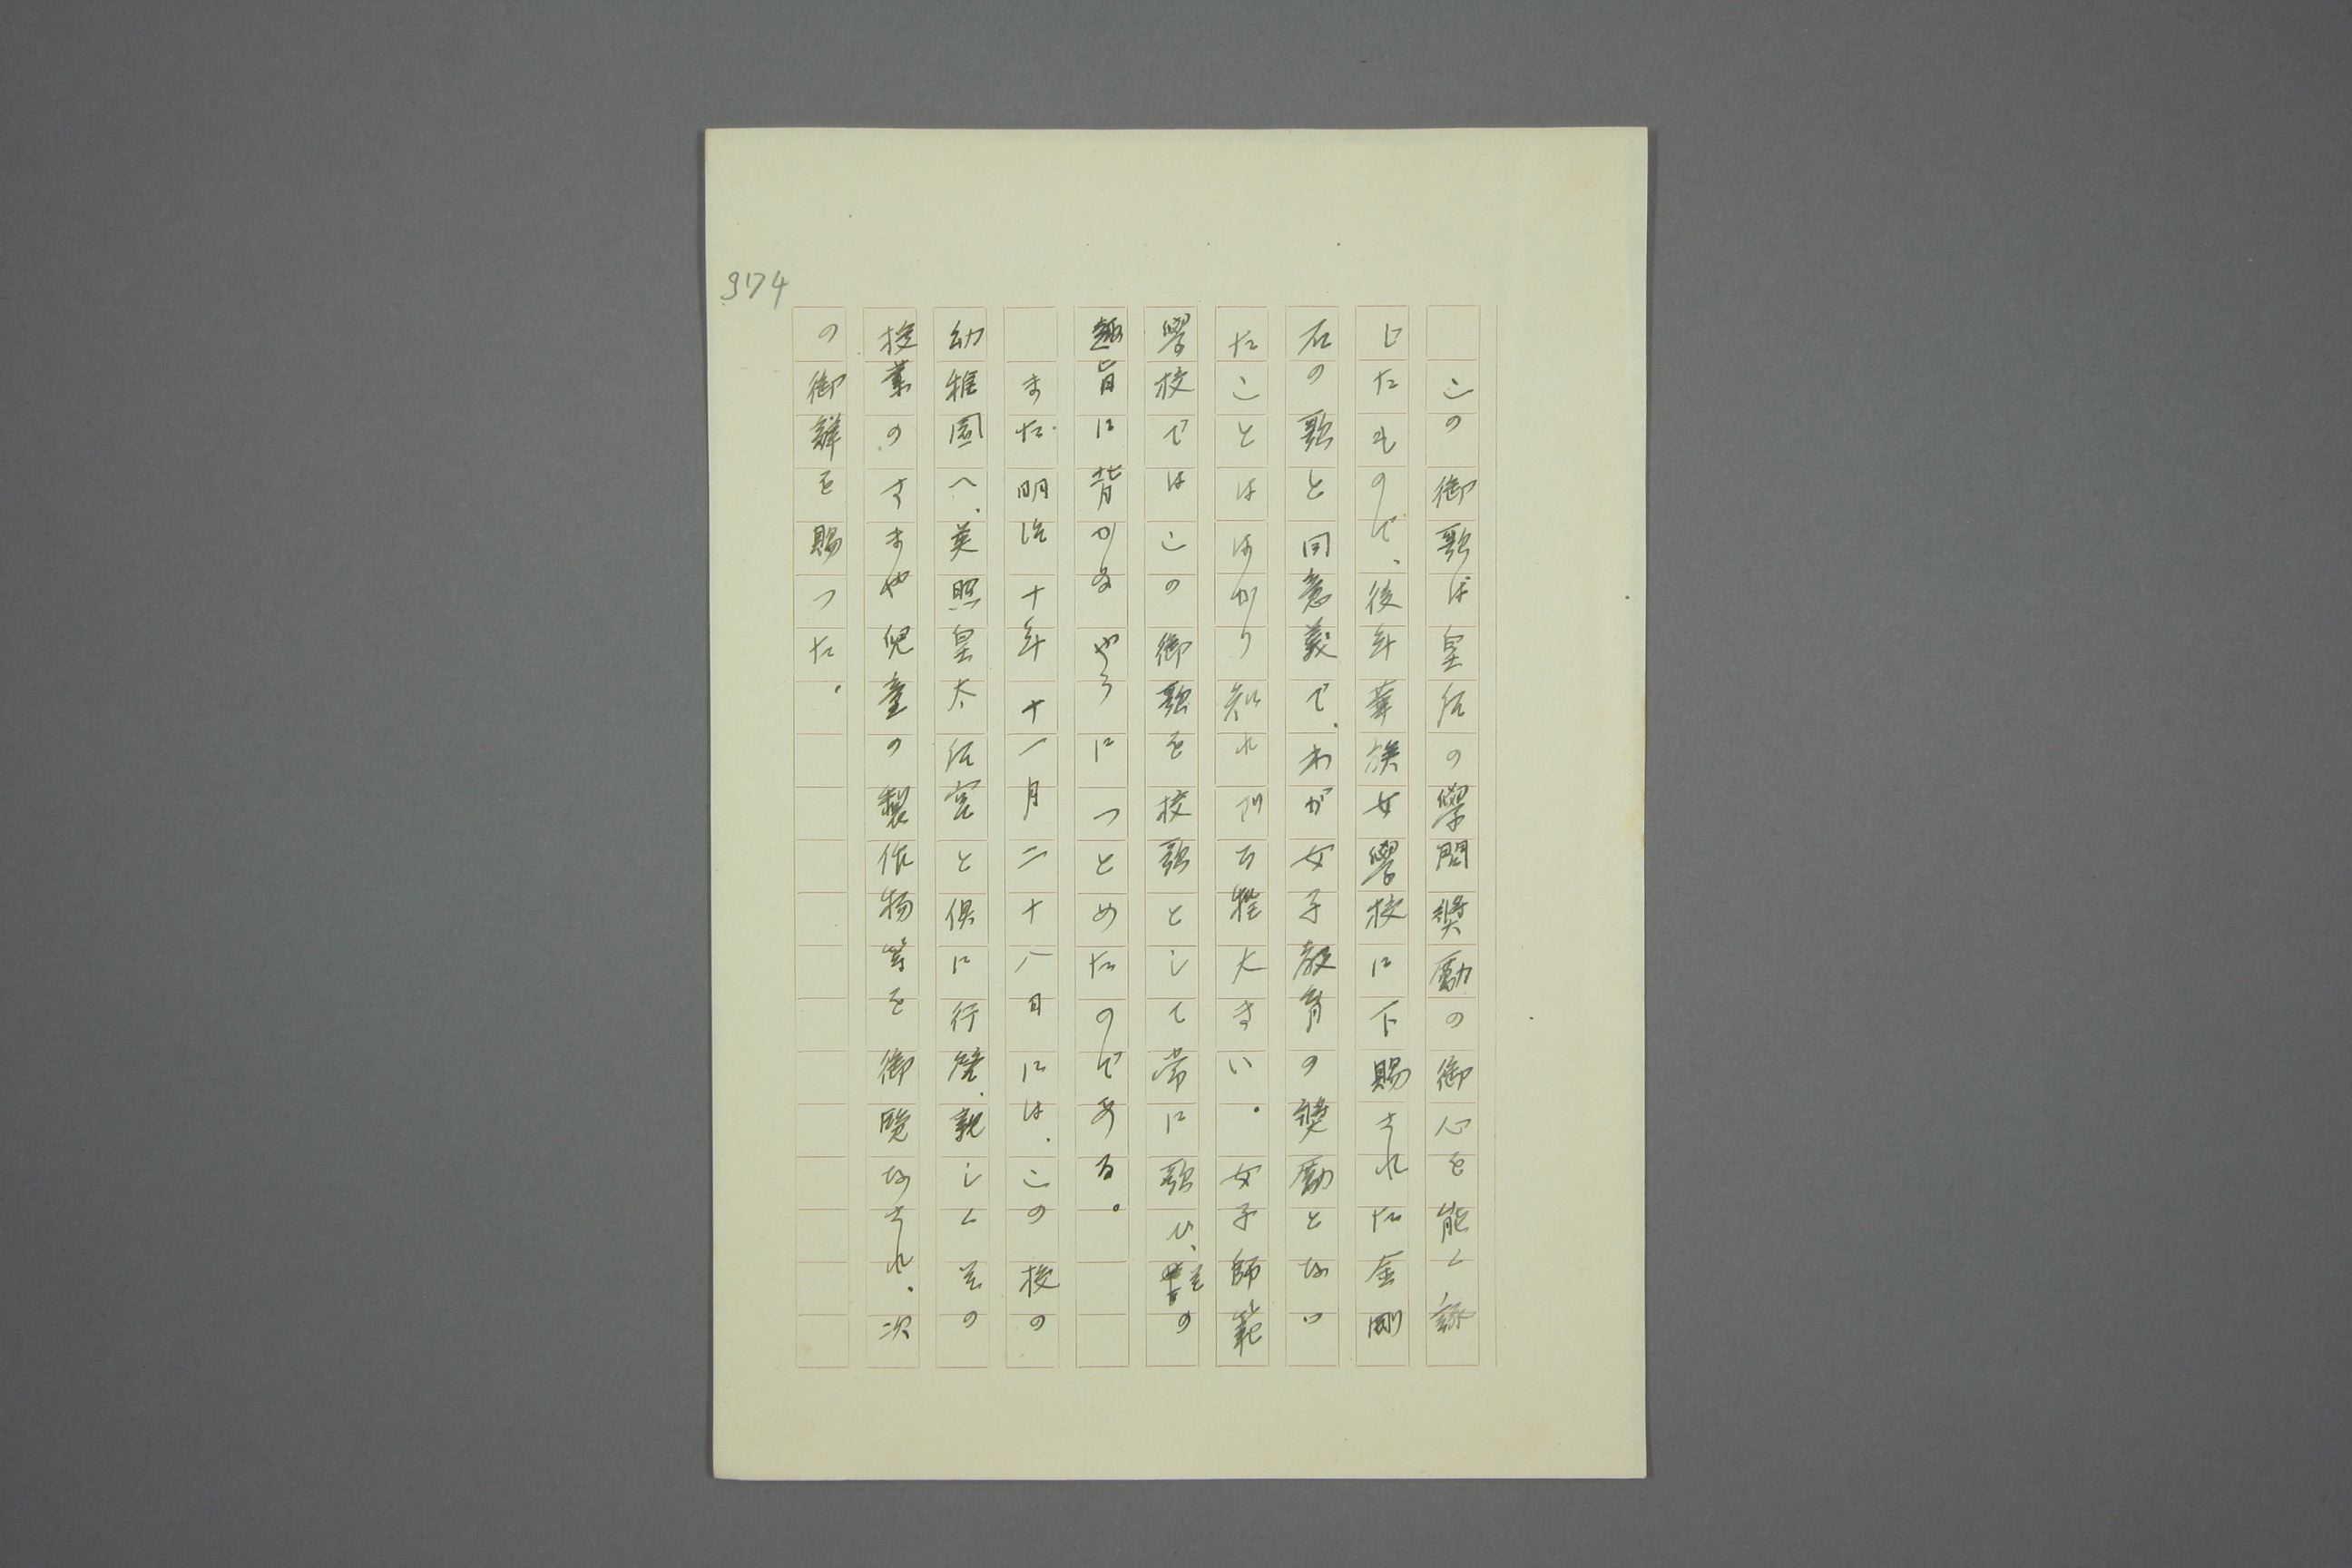 374
この御歌は皇后の學問奬勵の御心を能く詠
じたもので、後年華族女學校に下賜された金剛
石の歌と同意義で、わが女子教育の奬勵となつ
たことははかり知れぬ程大きい。女子師範
學校ではこの御歌を校歌として常に歌ひ、その
趣旨に背かぬやうにつとめたのである。
また明治十年十一月二十八日には、この校の
幼稚園へ、英照皇太后宮と倶に行啓、親しくその
授業のさまや兒童の製作物等を御覽なされ、次
の御辭を賜つた。